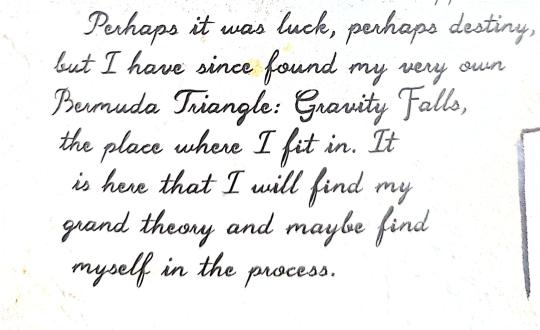 Perhaps it was luck, perhaps destiny,
but I have since found my very own
Bermuda Triangle: Gravity Falls,
the place where I fit in. It
is here that I will find my
grand theory and maybe find
myself in the process.